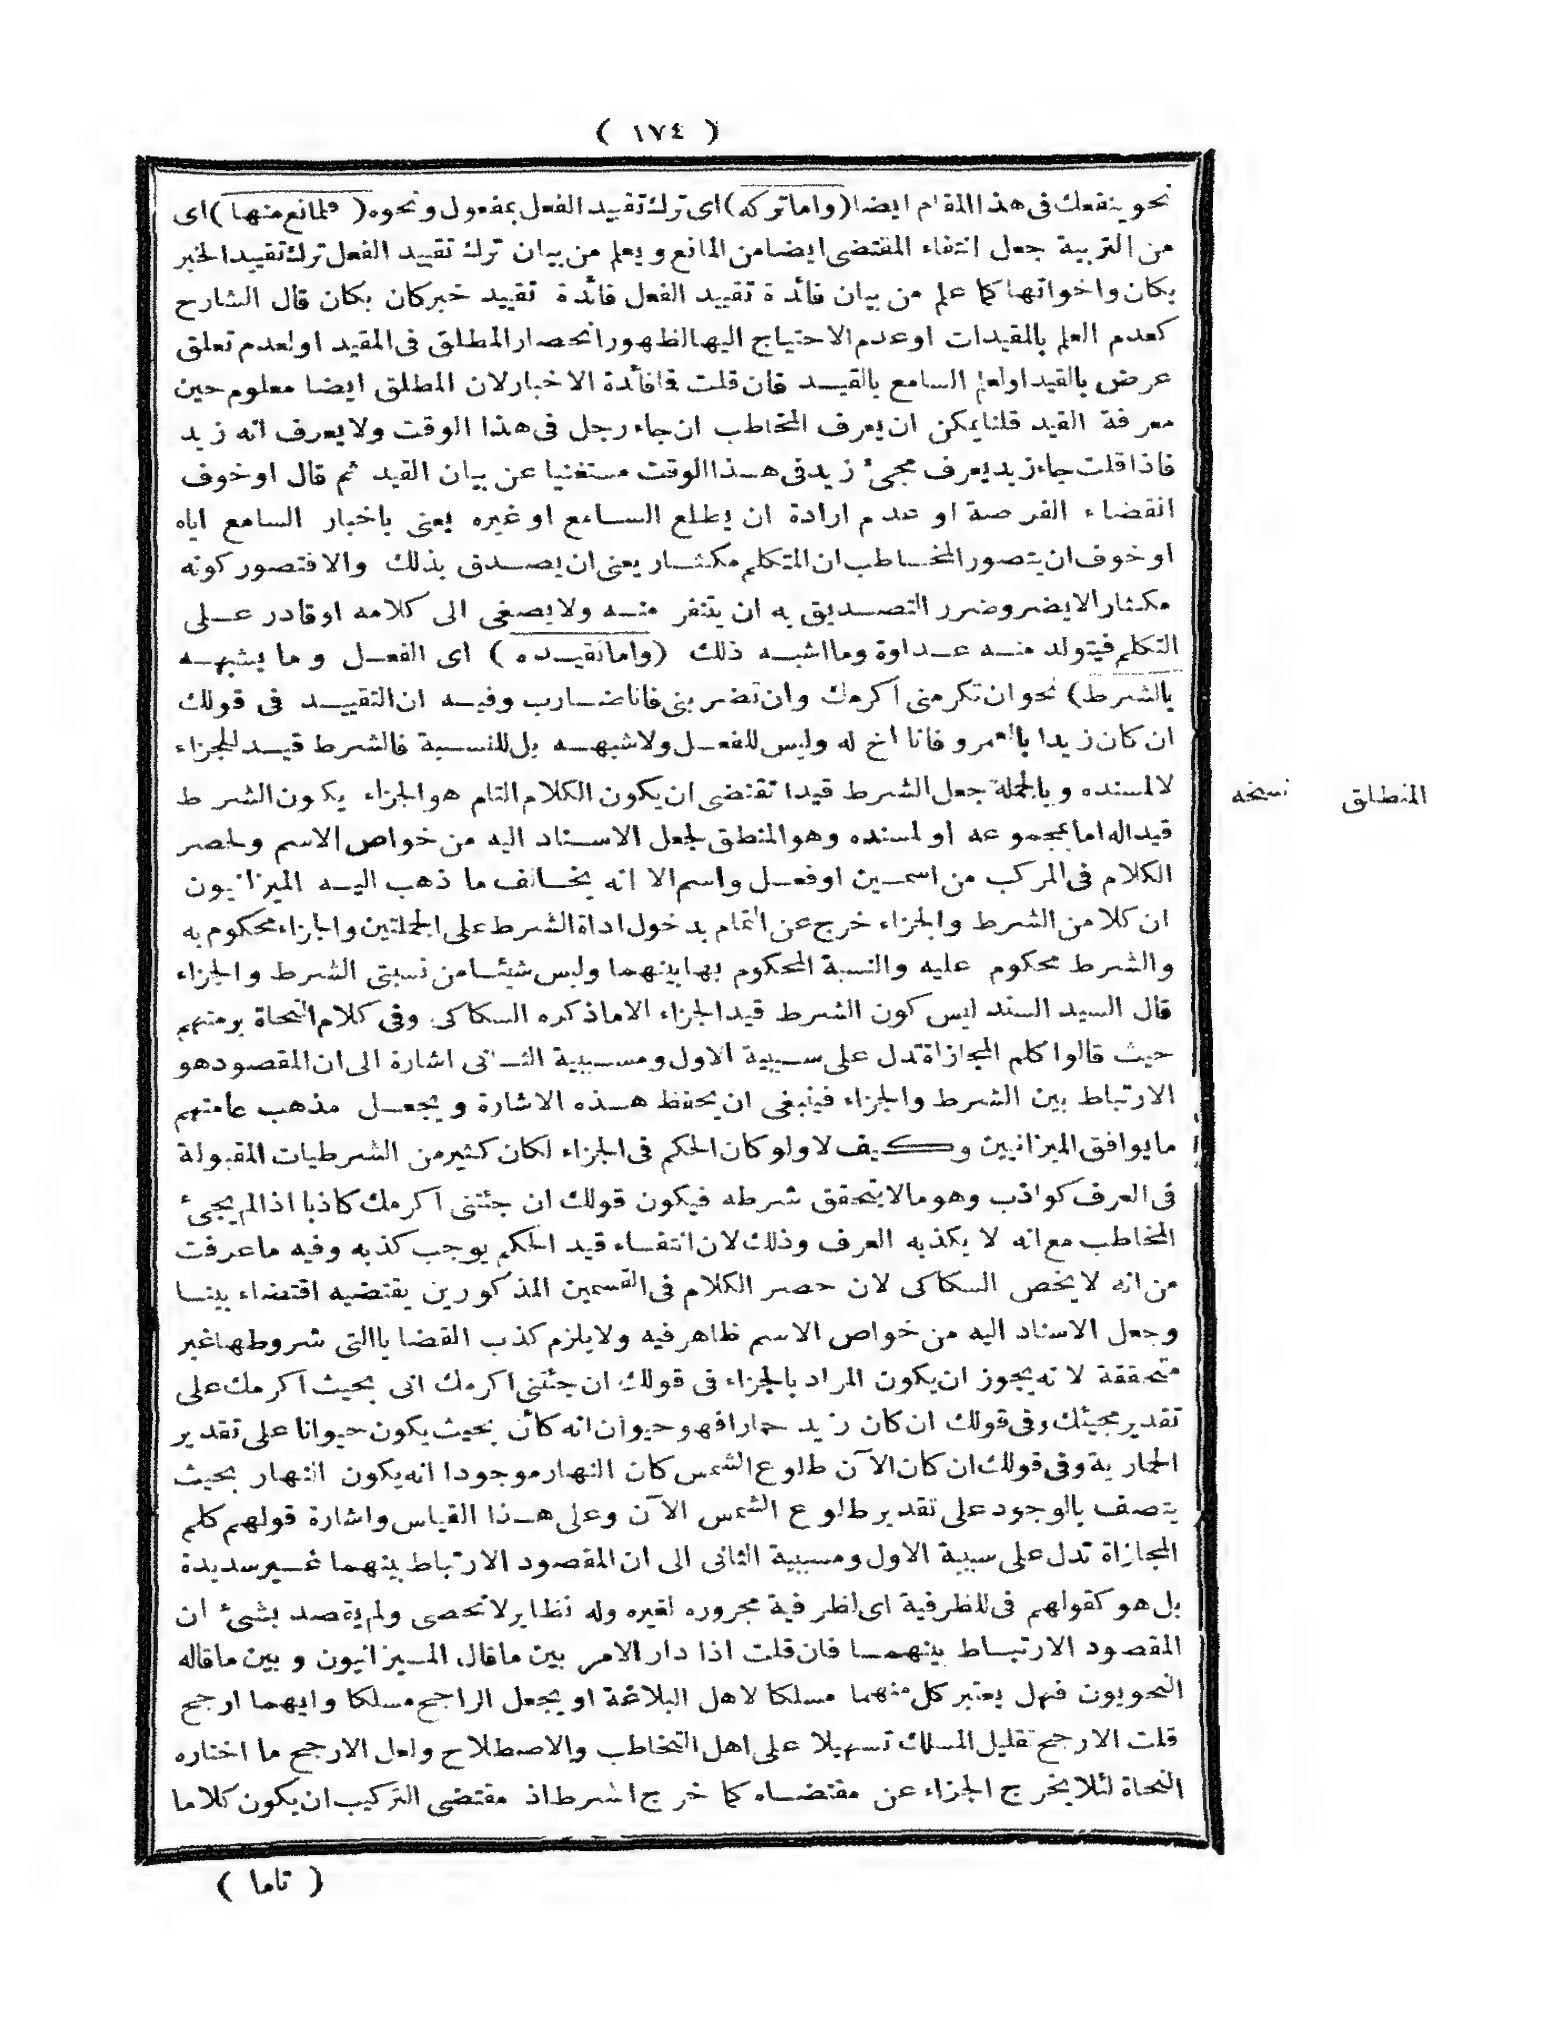 ( ١٧٤ )
نحو ينفعك فى هذا المقام ايضا (واما تركه) اى ترك تقييد الفعل بمفعول ونحوه ( فلمانع منها ) اى
من التربية جعل انتفاء المقتضى ايضا من المانع ويعلم من بيان ترك تقييد الفعل ترك تقييد الخبر
بكان واخواتها كما علم من بيان فائدة تقييد الفعل فائدة تقييد خبركان بكان قال الشارح
كعدم العلم بالمقيدات او عدم الاحتياج اليها لظهور انحصار المطلق فى المقيد او لعدم تعلق
عرض بالقيد او لعلم السامع بالقيد فان قلت فا فائدة الاخبار لان المطلق ايضا معلوم حين
معرفة القيد قلنا يمكن ان يعرف المخاطب ان جاء رجل فى هذا الوقت ولا يعرف انه زيد
فاذا قلت جاء زيد يعرف مجىء زيد فى هذا الوقت مستغنيا عن بيان القيد ثم قال او خوف
انقضاء الفرصة او عدم ارادة ان يطلع السامع او غيره يعنى باخبار السامع اياه
او خوف ان يتصور المخاطب ان المتكلم مكثار يعنى ان يصدق بذلك والا فتصور كونه
مكثارا لا يضر وضرر التصديق به ان يتنفر منه ولا يصغى الى كلامه او قادر على
التكلم فيتولد منه عداوة وما اشبه ذلك (واما تقييده ) اى الفعل وما يشبهه
بالشرط) نحو ان تكرمنى اكرمك وان تضربنى فانا ضارب وفيه ان التقييد فى قولك
ان كان زيد ابا لعمرو فانا اخ له وليس للفعل ولا شبهه بل للنسبة فالشرط قيد للجزاء
لا لمسنده وبالجملة جعل الشرط قيدا تقتضى ان يكون الكلام التام هو الجزاء يكون الشرط
قيدا له اما بمجموعه او لمسنده وهو المنطق لجعل الاسناد اليه من خواص الاسم ولحصر
الكلام فى المركب من اسمين او فعل واسم الا انه يخالف ما ذهب اليه الميزانيون
ان كلا من الشرط والجزاء خرج عن التمام بدخول اداة الشرط على الجملتين والجزاء محكوم به
والشرط محكوم عليه والنسبة المحكوم بها بينهما وليس شيئا من نسبتى الشرط والجزاء
قال السيد السند ليس كون الشرط قيد الجزاء الا ما ذكره السكاكى وفى كلام النحاة برمتهم
حيث قالوا كلم المجازاة تدل على سببية الاول ومسببية الثانى اشارة الى ان المقصود هو
الارتباط بين الشرط والجزاء فينبغى ان يحفظ هذه الاشارة ويجعل مذهب عامتهم
ما يوافق الميزانيين وكيف لا ولو كان الحكم فى الجزاء لكان كثير من الشرطيات المقبولة
فى العرف كواذب وهو ما لا يتحقق شرطه فيكون قولك ان جئتنى اكرمك كاذبا اذا لم يجىء
المخاطب مع انه لا يكذبه العرف وذلك لان انتفاء قيد الحكم يوجب كذبه وفيه ما عرفت
من انه لا يخص السكاكى لان حصر الكلام فى القسمين المذكورين يقتضيه اقتضاء بينا
وجعل الاسناد اليه من خواص الاسم ظاهر فيه ولا يلزم كذب القضايا التى شروطها غير
متحققة لانه يجوز ان يكون المراد بالجزاء فى قولك ان جئتنى اكرمك انى بحيث اكرمك على
تقدير مجيئك وفى قولك ان كان زيد حمارا فهو حيوان انه كائن بحيث يكون حيوانا على تقدير
الحمارية وفى قولك ان كان الآن طلوع الشمس كان النهار موجودا انه يكون النهار بحيث
يتصف بالوجود على تقدير طلوع الشمس الآن وعلى هذا القياس واشارة قولهم كلم
المجازاة تدل على سببية الاول ومسببية الثانى الى ان المقصود الارتباط بينهما غير سديدة
بل هو كقولهم فى للظرفية اى لظرفية مجروره لغيره وله نظاير لا تحصى ولم يقصد بشىء ان
المقصود الارتباط بينهما فان قلت اذا دار الامر بين ما قال الميزانيون وبين ما قاله
النحويون فهل يعتبر كل منهما مسلكا لاهل البلاغة او يجعل الراجح مسلكا وايهما ارجح
قلت الارجح تقليل المسلك تسهيلا على اهل التخاطب والاصطلاح ولعل الارجح ما اختاره
النحاة لئلا يخرج الجزاء عن مقتضاه كما خرج الشرط اذ مقتضى التركيب ان يكون كلاما
المنطلق نسخه
( تاما )